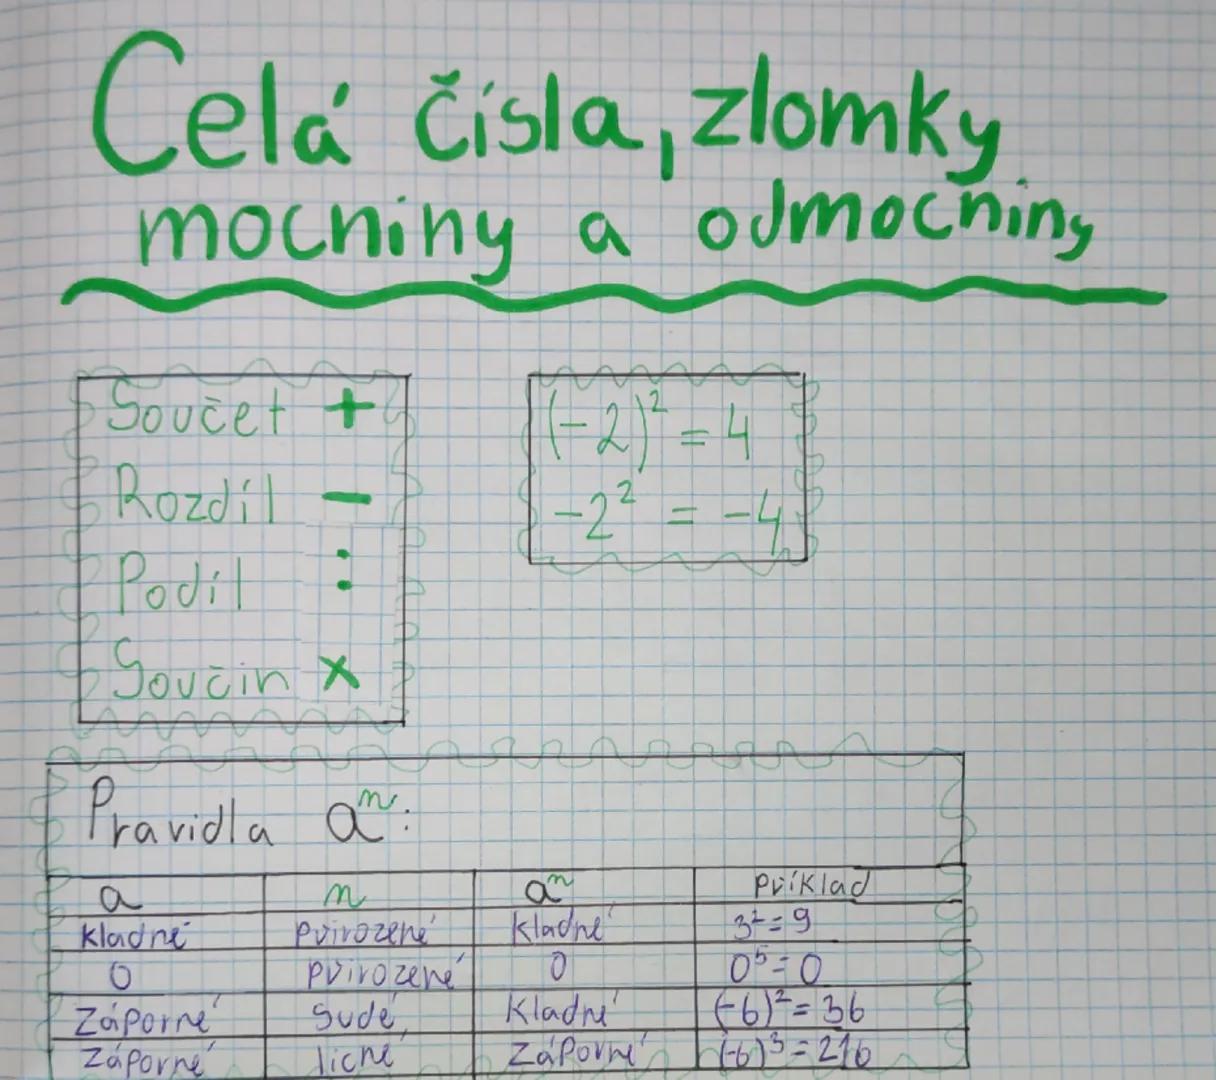 Celá čísla, zlomky
mocniny a odmocniny
Součet +
Rozdíl −
Podíl :
Součin ×
(−2)² = 4
−2² = −4
Pravidla aⁿ:
a n aⁿ příklad
kladné přirozené kladné 3² = 9
0 přirozené 0 0⁵ = 0
Záporné Sudé kladné (−6)² = 36
Záporné licné Záporné (−6)³ = 216